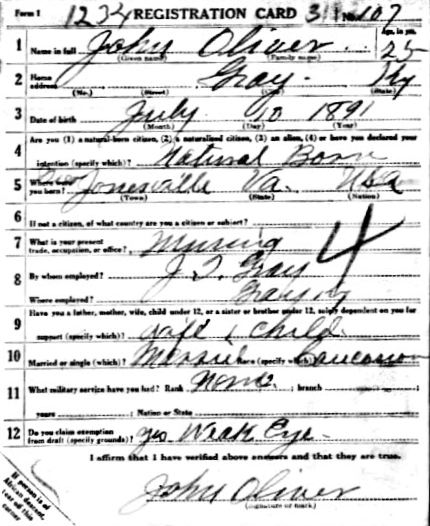 Form 1 1234 REGISTRATION CARD 311 No. 107
1 Name in full John Oliver Age, in yrs. 25
(Given name) (Family name)
2 Home address Gray Ky
(No.) (Street) (City) (State)
3 Date of birth July 10 1891
(Month) (Day) (Year)
Are you (1) a natural-born citizen, (2) a naturalized citizen, (3) an alien, (4) or have you declared your
4 intention (specify which)? Natural Born
5 Where were you born? Jonesville Va. USA
(Town) (State) (Nation)
6 If not a citizen, of what country are you a citizen or subject?
7 What is your present trade, occupation, or office? Mining 4
8 By whom employed? J. T. Gray
Where employed? Gray Ky
Have you a father, mother, wife, child under 12, or a sister or brother under 12, solely dependent on you for
9 support (specify which)? wife & child
10 Married or single (which)? Married Race (specify which)? Caucasian
11 What military service have you had? Rank None ; branch ;
years ; Nation or State
12 Do you claim exemption from draft (specify grounds)? yes Weak Eye
I affirm that I have verified above answers and that they are true.
John Oliver
(Signature or mark)
If person is of
African descent,
tear off this
corner